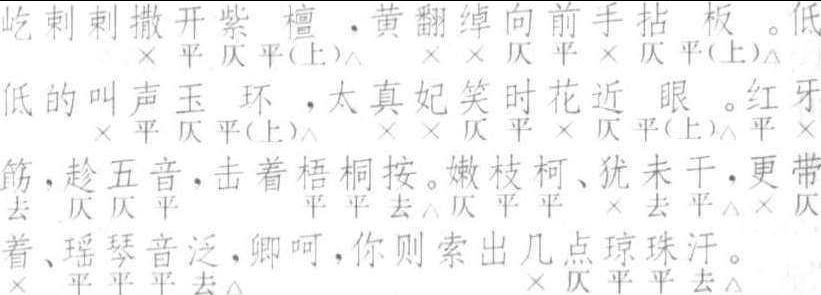 屹剌剌撒开紫檀，黄翻绰向前手拈板。低
×平仄平(上)△××仄平×仄平(上)△
低的叫声玉环，太真妃笑时花近眼。红牙
×平仄平(上)△××仄平×仄平(上)△平×
筯，趁五音，击着梧桐按。嫩枝柯、犹未干，更带
去仄仄平平平去△仄平平×去平△×仄
着、瑶琴音泛，卿呵，你则索出几点琼珠汗。
×平平平去△×仄平平去△